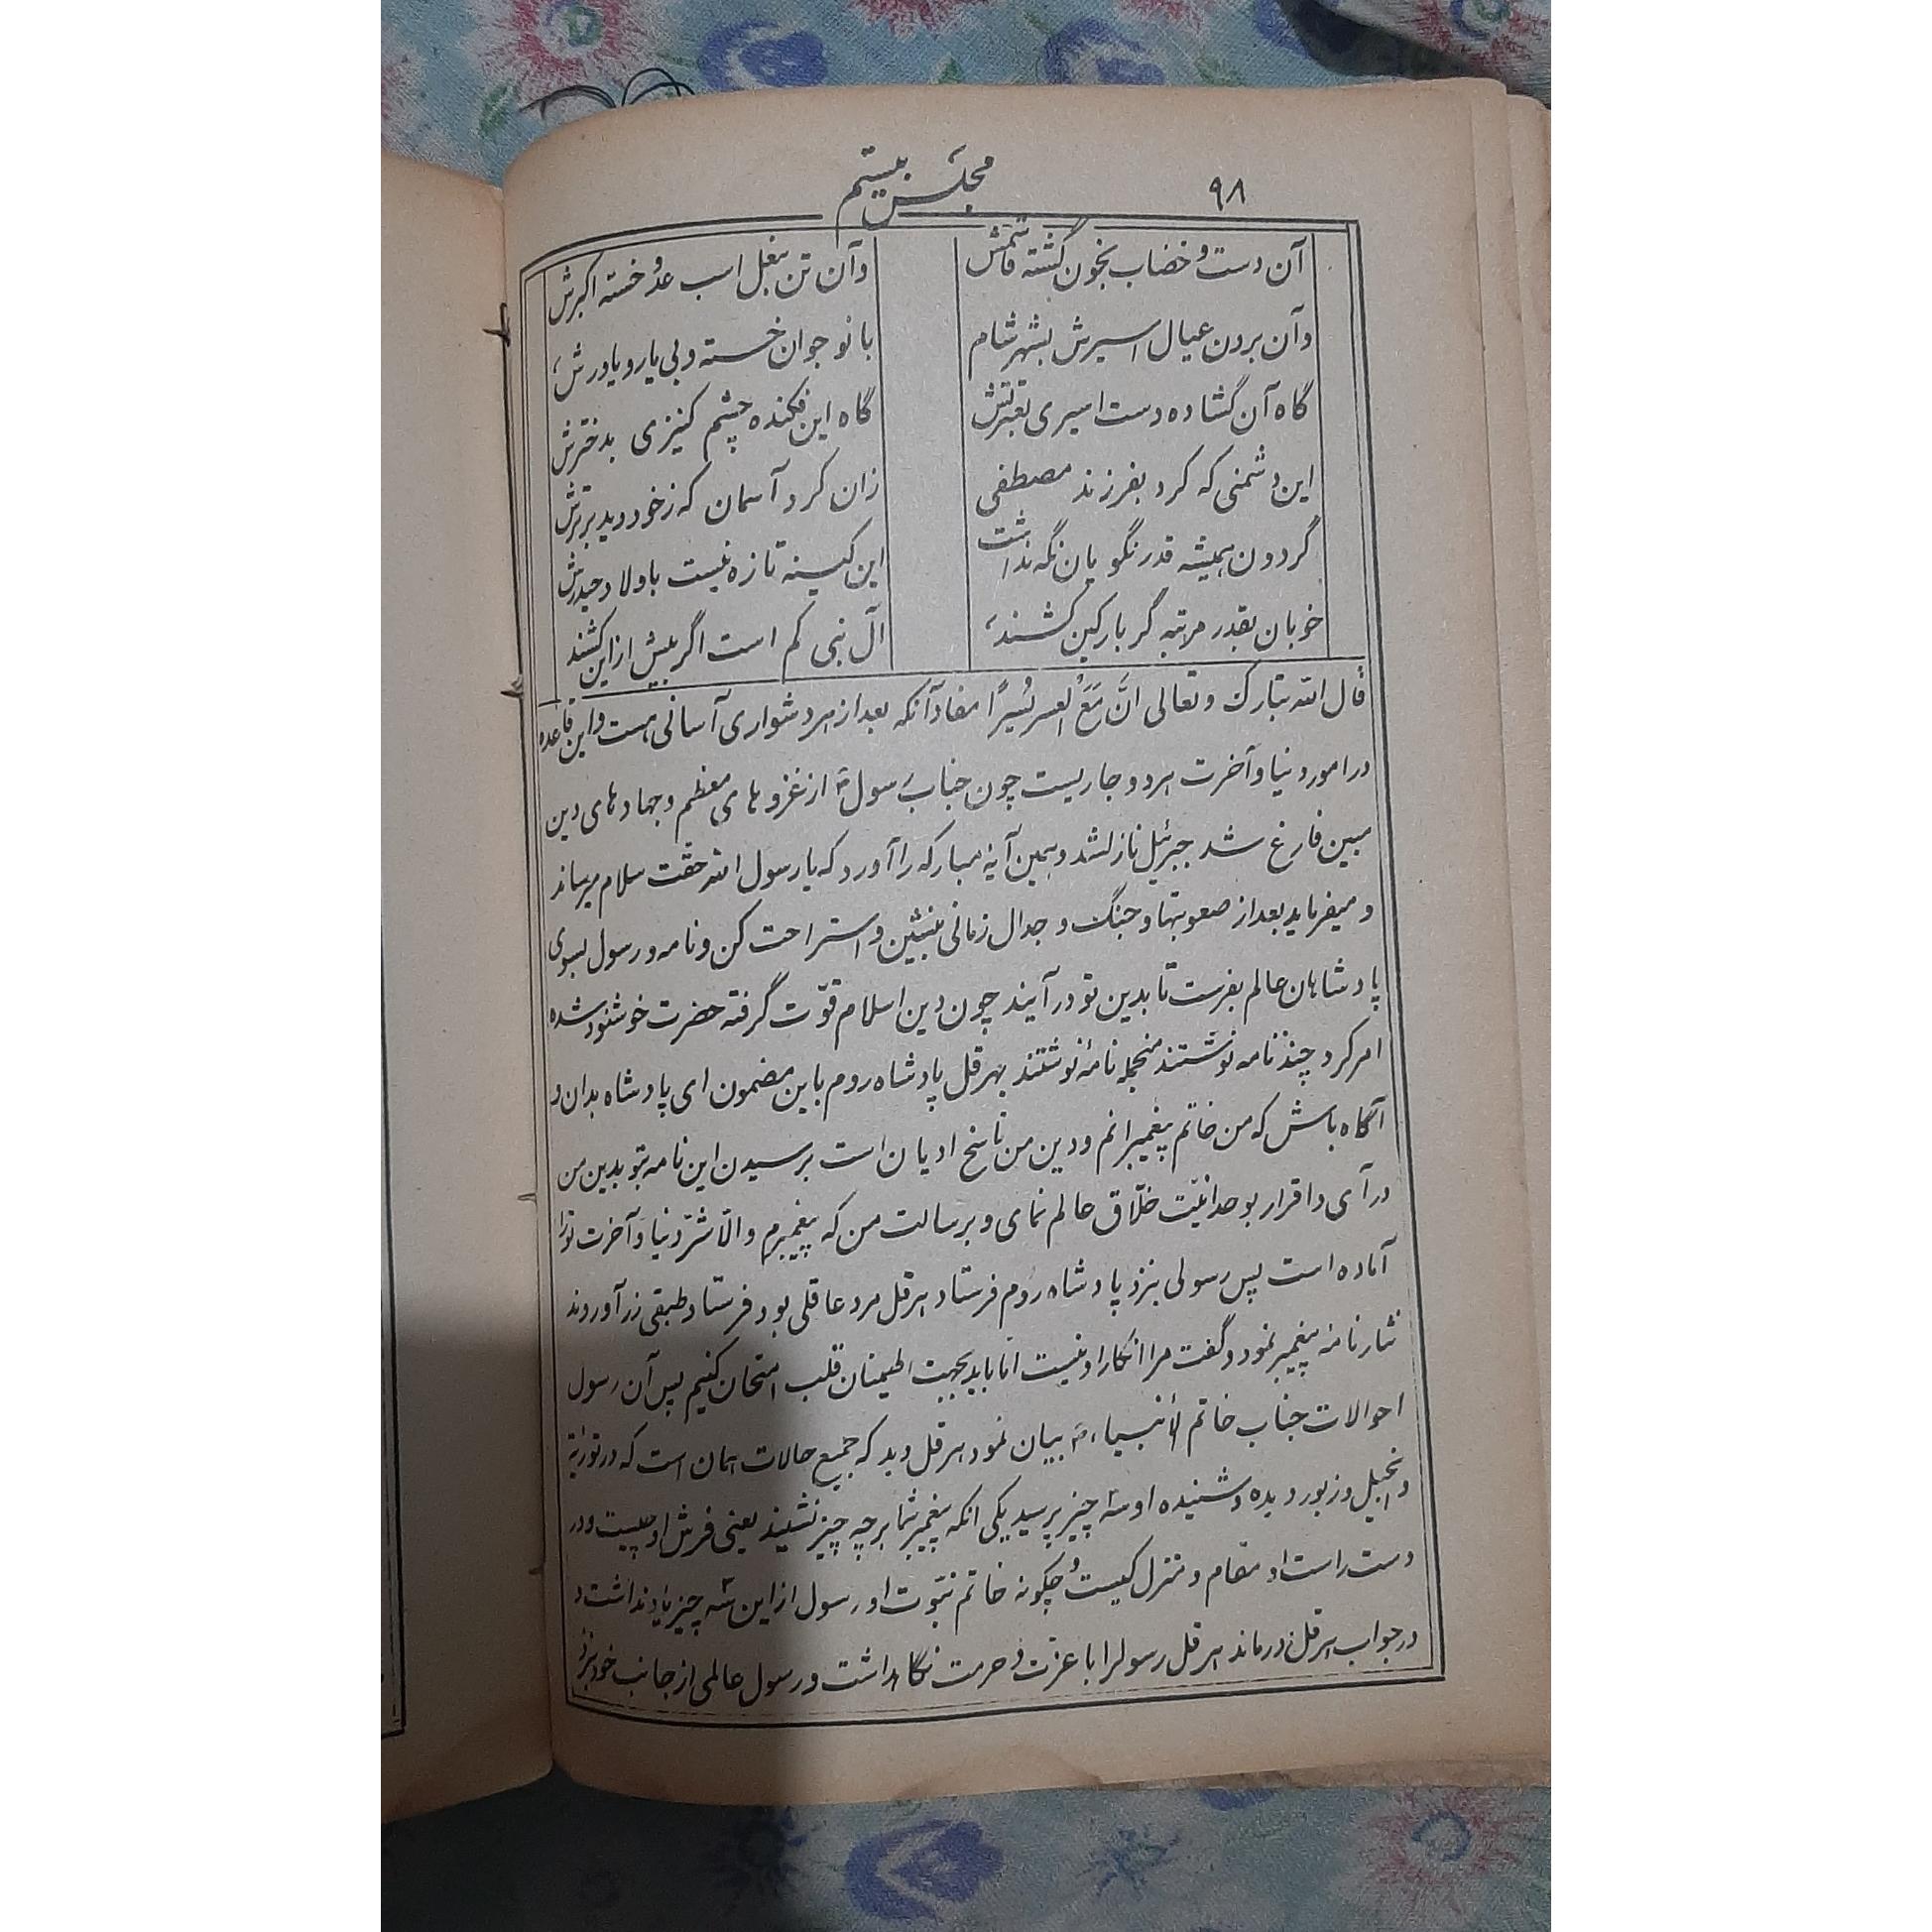 ۹۸
مجلس بیستم
آن دست و خضاب بخون گشته قاسمش
وآن تن بنعل اسب عدو خسته اکبرش
وآن بردن عیال اسیرش بشهر شام
با نوجوان خسته و بی یار و یاورش
گاه آن گشاده دست اسیری بعترتش
گاه این فکنده چشم کنیزی بدخترش
این دشمنی که کرد بفرزند مصطفی
زان کرد آسمان که ز خود دید برترش
گردون همیشه قدر نکویان نگه نداشت
این کینه تازه نیست باولاد حیدرش
خوبان بقدر مرتبه گر بار کین کشند
آل نبی کم است اگر بیش از این کشند
قال الله تبارک وتعالی انَّ مَعَ العسر یُسیرًا مفاد آنکه بعد از هر دشواری آسانی هست و این قاعده
در امور دنیا و آخرت هر دو جاریست چون جناب رسول از غزوه‌های معظم و جهادهای دین
مبین فارغ شد جبرئیل نازلشد و همین آیهٔ مبارکه را آورد که یا رسول الله حقت سلام میرساند
و میفرماید بعد از صعوبتها و جنگ و جدال زمانی بنشین و استراحت کن و نامه و رسول بسوی
پادشاهان عالم بفرست تا بدین تو درآیند چون دین اسلام قوّت گرفته حضرت خوشنود شده
امر کرد چند نامه نوشتند منجمله نامهٔ نوشتند بهرقل پادشاه روم باین مضمون ای پادشاه بدان و
آگاه باش که من خاتم پیغمبرانم و دین من ناسخ ادیان است برسیدن این نامه بتو بدین من
درآی و اقرار بوحدانیّت خلّاق عالم نمای و برسالت من که پیغمبرم و الّا شرّ دنیا و آخرت تو را
آماده است پس رسولی بنزد پادشاه روم فرستاد هرقل مرد عاقلی بود فرستاد طبقی زر آوردند
نثار نامهٔ پیغمبر نمود و گفت مرا انکار او نیست امّا باید بجهت اطمینان قلب امتحان کنیم پس آن رسول
احوالات جناب خاتم الأنبیاء بیان نمود هرقل دید که جمیع حالات همان است که در توریة
و انجیل و زبور دیده و شنیده او سه چیز پرسید یکی آنکه پیغمبر شما بر چه چیز نشیند یعنی فرش او چیست و در
دست راست او مقام و منزل کیست و چگونه خاتم نبوّت او رسول از این سه چیز یاد نداشت و
در جواب هرقل درماند هرقل رسولرا با عزت و حرمت نگاهداشت و رسول عالمی از جانب خود بنزد